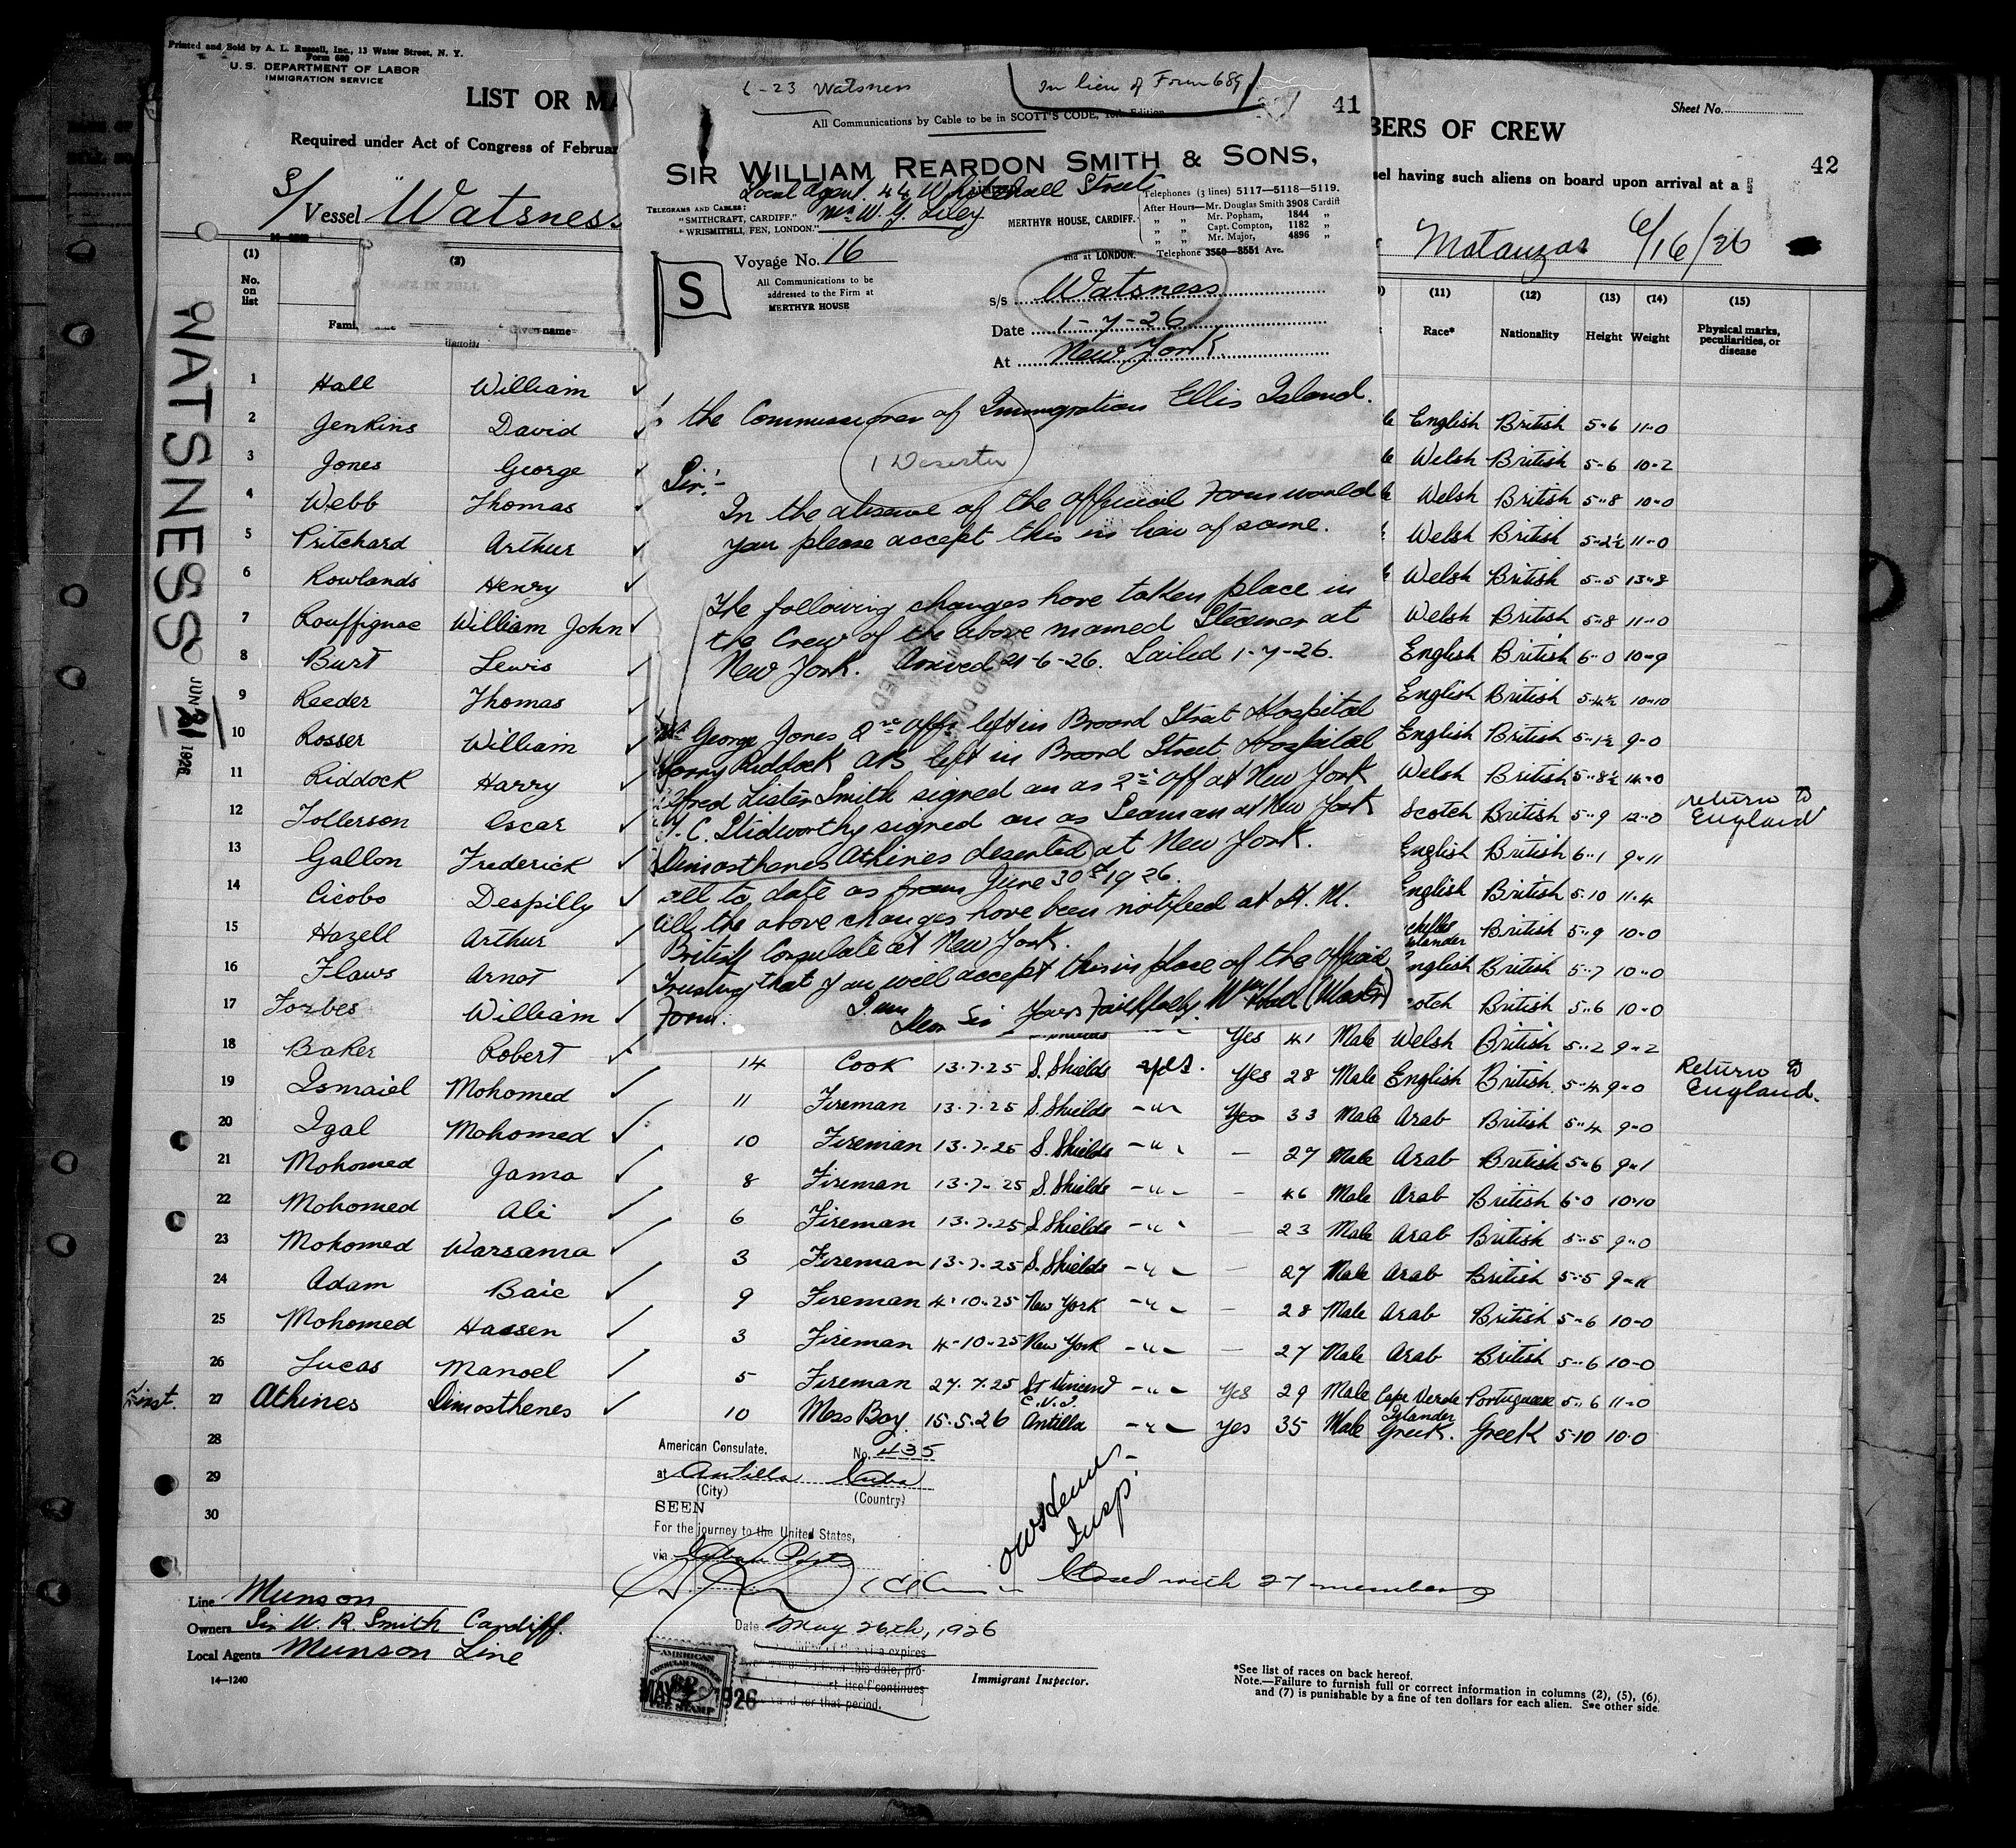 Printed and Sold by A. L. Russell, Inc., 13 Water Street, N. Y.
Form 689
U. S. DEPARTMENT OF LABOR
IMMIGRATION SERVICE
LIST OR MA
BERS OF CREW
Sheet No.
42
Required under Act of Congress of Februar
sel having such aliens on board upon arrival at a
S/ Vessel "Watsness
Matanzas 6/16/26
WATSNESS
JUN 21 1926
6-23 Watsness
In lieu of Form 689
41
All Communications by Cable to be in SCOTT'S CODE, 10th Edition
SIR WILLIAM REARDON SMITH & SONS,
Local Agent. 44 Whitehall Street
Mr W. G. Liley
TELEGRAMS AND CABLES:
"SMITHCRAFT, CARDIFF."
"WRISMITHLI, FEN, LONDON."
MERTHYR HOUSE, CARDIFF.
Telephones (3 lines) 5117—5118—5119.
After Hours—Mr. Douglas Smith 3908 Cardiff
" " Mr. Popham, 1844 "
" " Capt. Compton, 1182 "
" " Mr. Major, 4896 "
and at LONDON. Telephone 3550—3551 Ave.
Voyage No. 16
All Communications to be
addressed to the Firm at
MERTHYR HOUSE
S
s/s Watsness
Date 1-7-26
At New York.
the Commissioner of Immigration Ellis Island.
1 Deserter
Sir:-
In the absence of the official Form would
you please accept this in lieu of same.
The following changes have taken place in
the Crew of the above named Steamer at
New York. Arrived 21-6-26. Sailed 1-7-26.
Mr George Jones 2nd Offr left in Broad Street Hospital
Harry Riddock AB left in Broad Street Hospital
Alfred Lister Smith signed on as 2nd Off at New York
T. C. Stidworthy signed on as Seaman at New York
Dimosthenes Athines deserted at New York.
all to date as from June 30th 1926.
All the above changes have been notifeed at H. M.
British Consulate at New York.
Trusting that you will accept this in place of the official
Form. I am
Dear Sir Yours Faithfully. Wm Hall (Master)
(1) No. on list
(2)
Given name
(11) Race*
(12) Nationality
(13) Height
(14) Weight
(15) Physical marks, peculiarities, or disease
1 Hall William ✓ English British 5-6 11-0
2 Jenkins David ✓ Welsh British 5-6 10-2
3 Jones George ✓ Welsh British 5-8 10-0
4 Webb Thomas ✓ Welsh British 5-2½ 11-0
5 Pritchard Arthur ✓ Welsh British 5-5 13-8
6 Rowlands Henry ✓ Welsh British 5-8 11-0
7 Rouffignac William John ✓ English British 6-0 10-9
8 Burt Lewis ✓ English British 5-4½ 10-10
9 Reeder Thomas ✓ English British 5-1½ 9-0
10 Rosser William ✓ Welsh British 5-8½ 14-0
11 Riddock Harry ✓ Scotch British 5-9 12-0 return to England
12 Tollerson Oscar ✓ English British 6-1 9-11
13 Gallon Frederick ✓ English British 5-10 11-4
14 Cicobo Despilly ✓ British 5-9 10-0
15 Hazell Arthur ✓ English British 5-7 10-0
16 Flaws Arnot ✓ otch British 5-6 10-0
17 Forbes William ✓ Yes 41 Male Welsh British 5-2 9-2
18 Baker Robert ✓ 14 Cook 13.7.25 S. Shields yes. Yes 28 Male English British 5-4 9-0 Return to England.
19 Ismaiel Mohomed ✓ 11 Fireman 13.7.25 S. Shields -"- Yes 33 Male Arab British 5-4 9-0
20 Igal Mohomed ✓ 10 Fireman 13.7.25 S. Shields -"- - 27 Male Arab British 5-6 9-1
21 Mohomed Jama ✓ 8 Fireman 13.7.25 S. Shields -"- - 46 Male Arab British 6-0 10-10
22 Mohomed Ali ✓ 6 Fireman 13.7.25 S. Shields -"- - 23 Male Arab British 5-5 9-0
23 Mohomed Warsama ✓ 3 Fireman 13.7.25 S. Shields -"- - 27 Male Arab British 5-5 9-11
24 Adam Baie ✓ 9 Fireman 4-10-25 New York -"- - 28 Male Arab British 5-6 10-0
25 Mohomed Hassen ✓ 3 Fireman 4-10-25 New York -"- - 27 Male Arab British 5-6 10-0
26 Lucas Manoel ✓ 5 Fireman 27.7.25 St Vincent C.V.I. -"- Yes 29 Male Cape Verde Islander Portuguese 5-6 11-0
First. 27 Athines Dimosthenes ✓ 10 Mess Boy 15.5.26 Antilla -"- Yes 35 Male Greek. Greek 5-10 10-0
28
29
30
American Consulate. No. 435
at Antilla Cuba
(City) (Country)
SEEN
For the journey to the United States,
via
Insp.
Closed with 27 members
Date May 26th, 1926
Line Munson
Owners Sir W. R. Smith Cardiff.
Local Agents Munson Line
14—1240
AMERICAN
CONSULAR SERVICE
FEE STAMP
MAY 1926
Immigrant Inspector.
*See list of races on back hereof.
Note.—Failure to furnish full or correct information in columns (2), (5), (6),
and (7) is punishable by a fine of ten dollars for each alien. See other side.